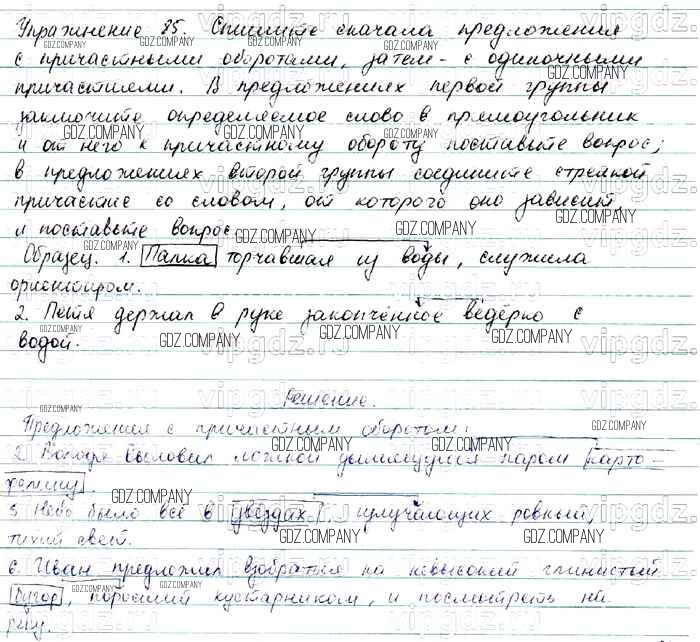 Упражнение 85. Спишите сначала предложения
с причастными оборотами, затем - с одиночными
причастиями. В предложениях первой группы
заключите определяемое слово в прямоугольник
и от него к причастному обороту поставьте вопрос;
в предложениях второй группы соедините стрелкой
причастие со словом, от которого оно зависит,
и поставьте вопрос
Образец. 1. Палка торчавшая из воды, служила
ориентиром.
2. Петя держал в руке закопчённое ведёрко с
водой.
Решение.
Предложения с причастным оборотом:
2. Володя выловил ложкой дымящуюся паром карто-
фелину.
5 Небо было всё в звёздах, излучающих ровный,
тихий свет.
6. Иван предложил взобраться на невысокий глинистый
бугор, поросший кустарником, и посмотреть на
реку.